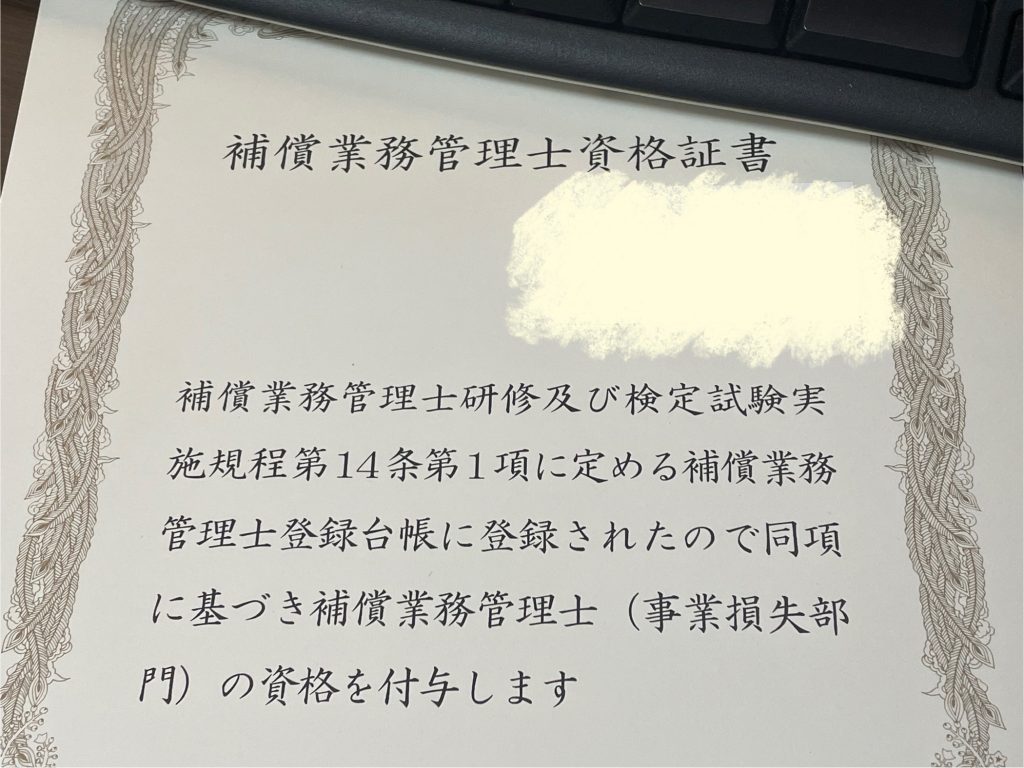 補償業務管理士資格証書
補償業務管理士研修及び検定試験実
施規程第14条第1項に定める補償業務
管理士登録台帳に登録されたので同項
に基づき補償業務管理士（事業損失部
門）の資格を付与します